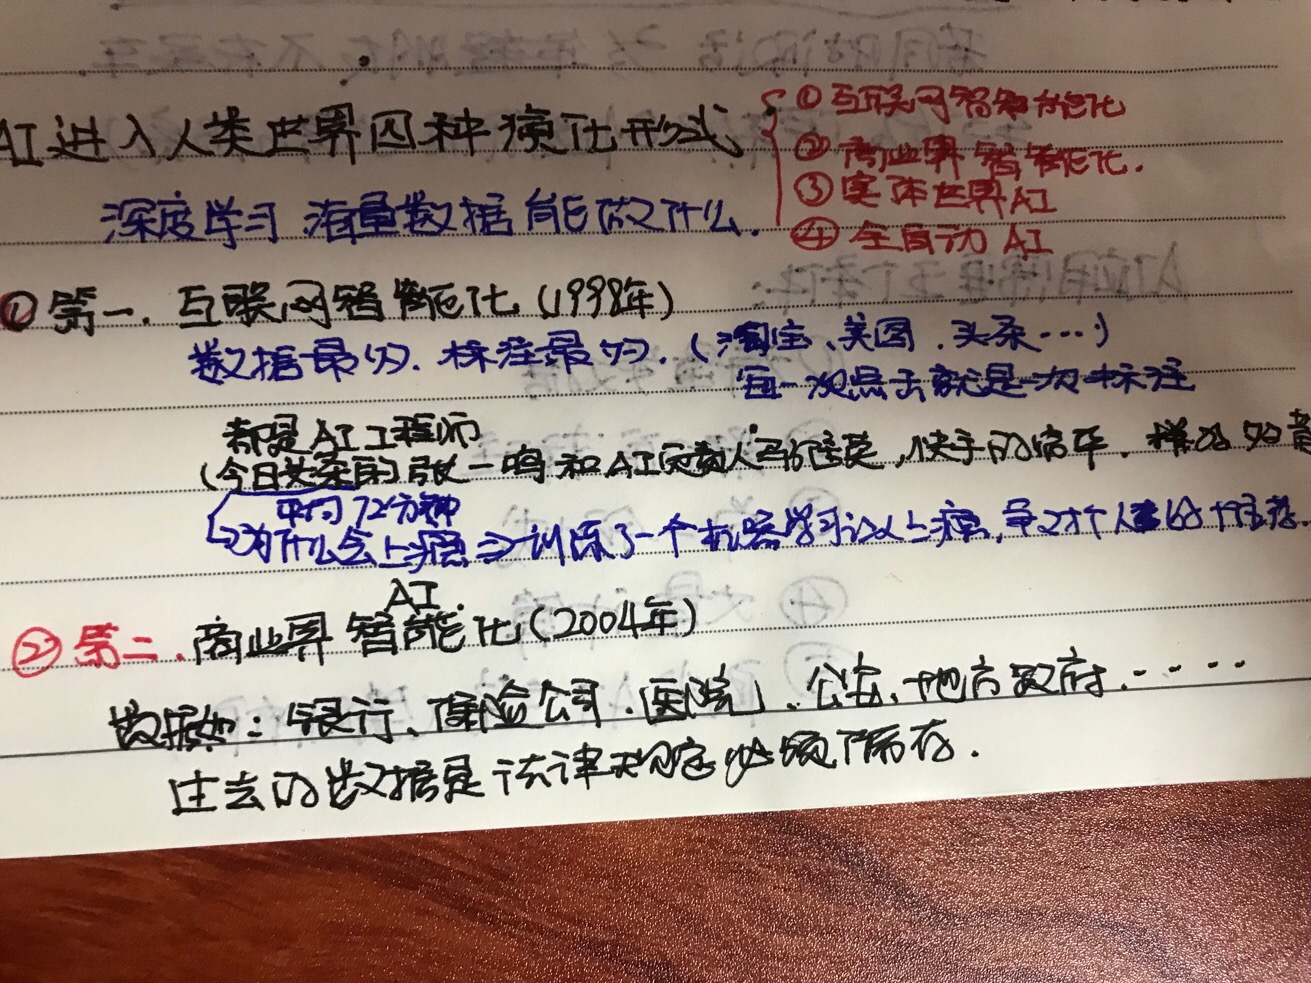 AI进入人类世界四种演化形式
①互联网智能化
②商业界智能化.
③实体世界AI
④全自动AI
深度学习 海量数据能做什么.
①第一. 互联网智能化(1998年)
数据最多. 标注最多. (淘宝、美图、头条…)
每一次点击就是一次标注
都是AI工程师
(今日头条的张一鸣和AI负责人马维英,快手的宿华.
平均72分钟
为什么会上瘾⇒训练了一个机器学习让人上瘾,
AI.
②第二.商业界智能化(2004年)
数据如:银行、保险公司.医院、公安、地方政府.····
过去的数据是法律规定必须储存.